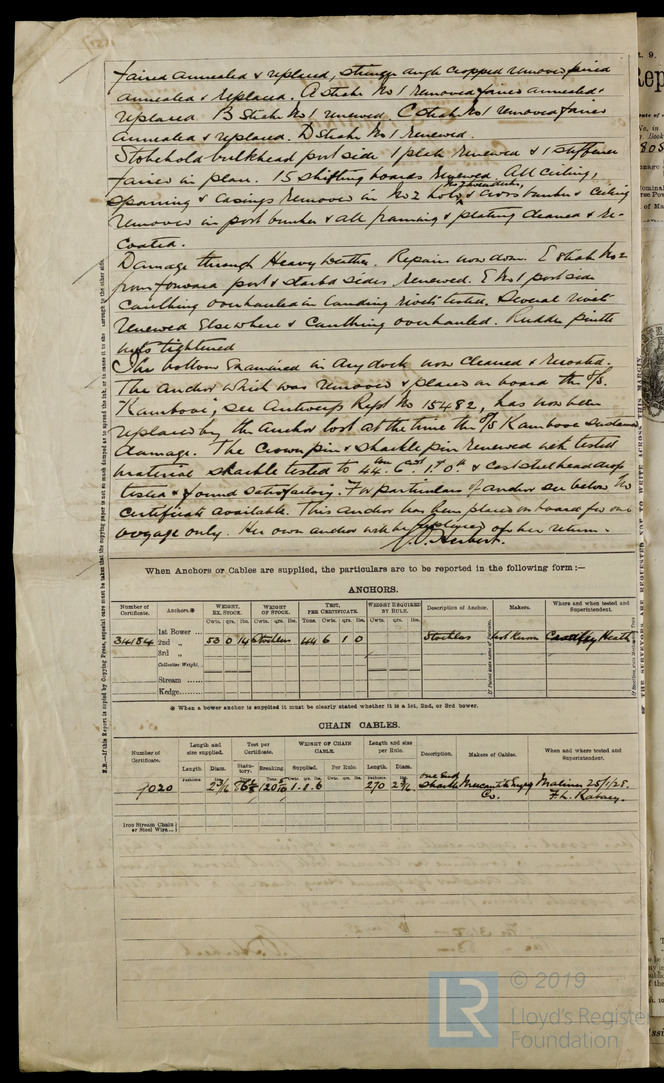 faired annealed & replaced, stringer angle cropped removed faired
annealed & replaced. A strake No 1 removed faired annealed &
replaced B strake No 1 renewed. C strake No 1 removed faired
annealed & replaced. D strake No 1 renewed.
Stokehold bulkhead port side 1 plate renewed & 1 stiffener
faired in place. 15 shifting boards renewed. All ceiling,
sparring & casings removed in No 2 hold & cross bunker & ceiling
removed in port bunker & all framing & plating cleaned & re-
coated.
Damage through Heavy Weather. Repairs now done. E strake No 2
from forward port & starbd sides renewed. E No 1 port side
caulking overhauled in landing rivets tested. Several rivets
renewed elsewhere & caulking overhauled. Rudder pintle
nuts tightened
The bottom examined in dry dock now cleaned & recoated.
The anchor which was removed & placed on board the S/S.
"Kambove", see Antwerp Rept No 15482, has now been
replaced by the anchor lost at the time the S/S Kambove sustained
damage. The crown pin & shackle pin renewed with tested
material shackle tested to 44 tons 6 cwt 1 q 0 lb & cast steel head drop
tested & found satisfactory. For particulars of anchor see below. No
certificate available. This anchor has been placed on board for one
voyage only. Her own anchor will be replaced on her return.
When Anchors or Cables are supplied, the particulars are to be reported in the following form :—
ANCHORS.
Number of Certificate. Anchors.※ WEIGHT, EX. STOCK. WEIGHT OF STOCK. TEST, PER CERTIFICATE. WEIGHT REQUIRED BY RULE. Description of Anchor. Makers. Where and when tested and Superintendent.
Cwts. qrs. lbs. Cwts. qrs. lbs. Tons. Cwts. qrs. lbs. Cwts. qrs. lbs.
1st Bower ...
34184 2nd „ 53 0 14 Stockless 44 6 1 0 Stockless Not Known Cradley Heath
3rd „
Collective Weight,
Stream ......
Kedge.......
※ When a bower anchor is supplied it must be clearly stated whether it is a 1st, 2nd, or 3rd bower.
CHAIN CABLES.
Number of Certificate. Length and size supplied. Test per Certificate. WEIGHT OF CHAIN CABLE. Length and size per Rule. Description. Makers of Cables. When and where tested and Superintendent.
Length. Diam. Statutory. Breaking. Supplied. Per Rule. Length. Diam.
Fathoms Ins. Tons. Tons. Cwts. qrs. lbs. Cwts. qrs. lbs. Fathoms Ins.
1020 2 3/16 1.0.6 270 2 3/16 one End Shackle
Co.
Iron Stream Chain or Steel Wire...
© 2019
Lloyd's Register
Foundation